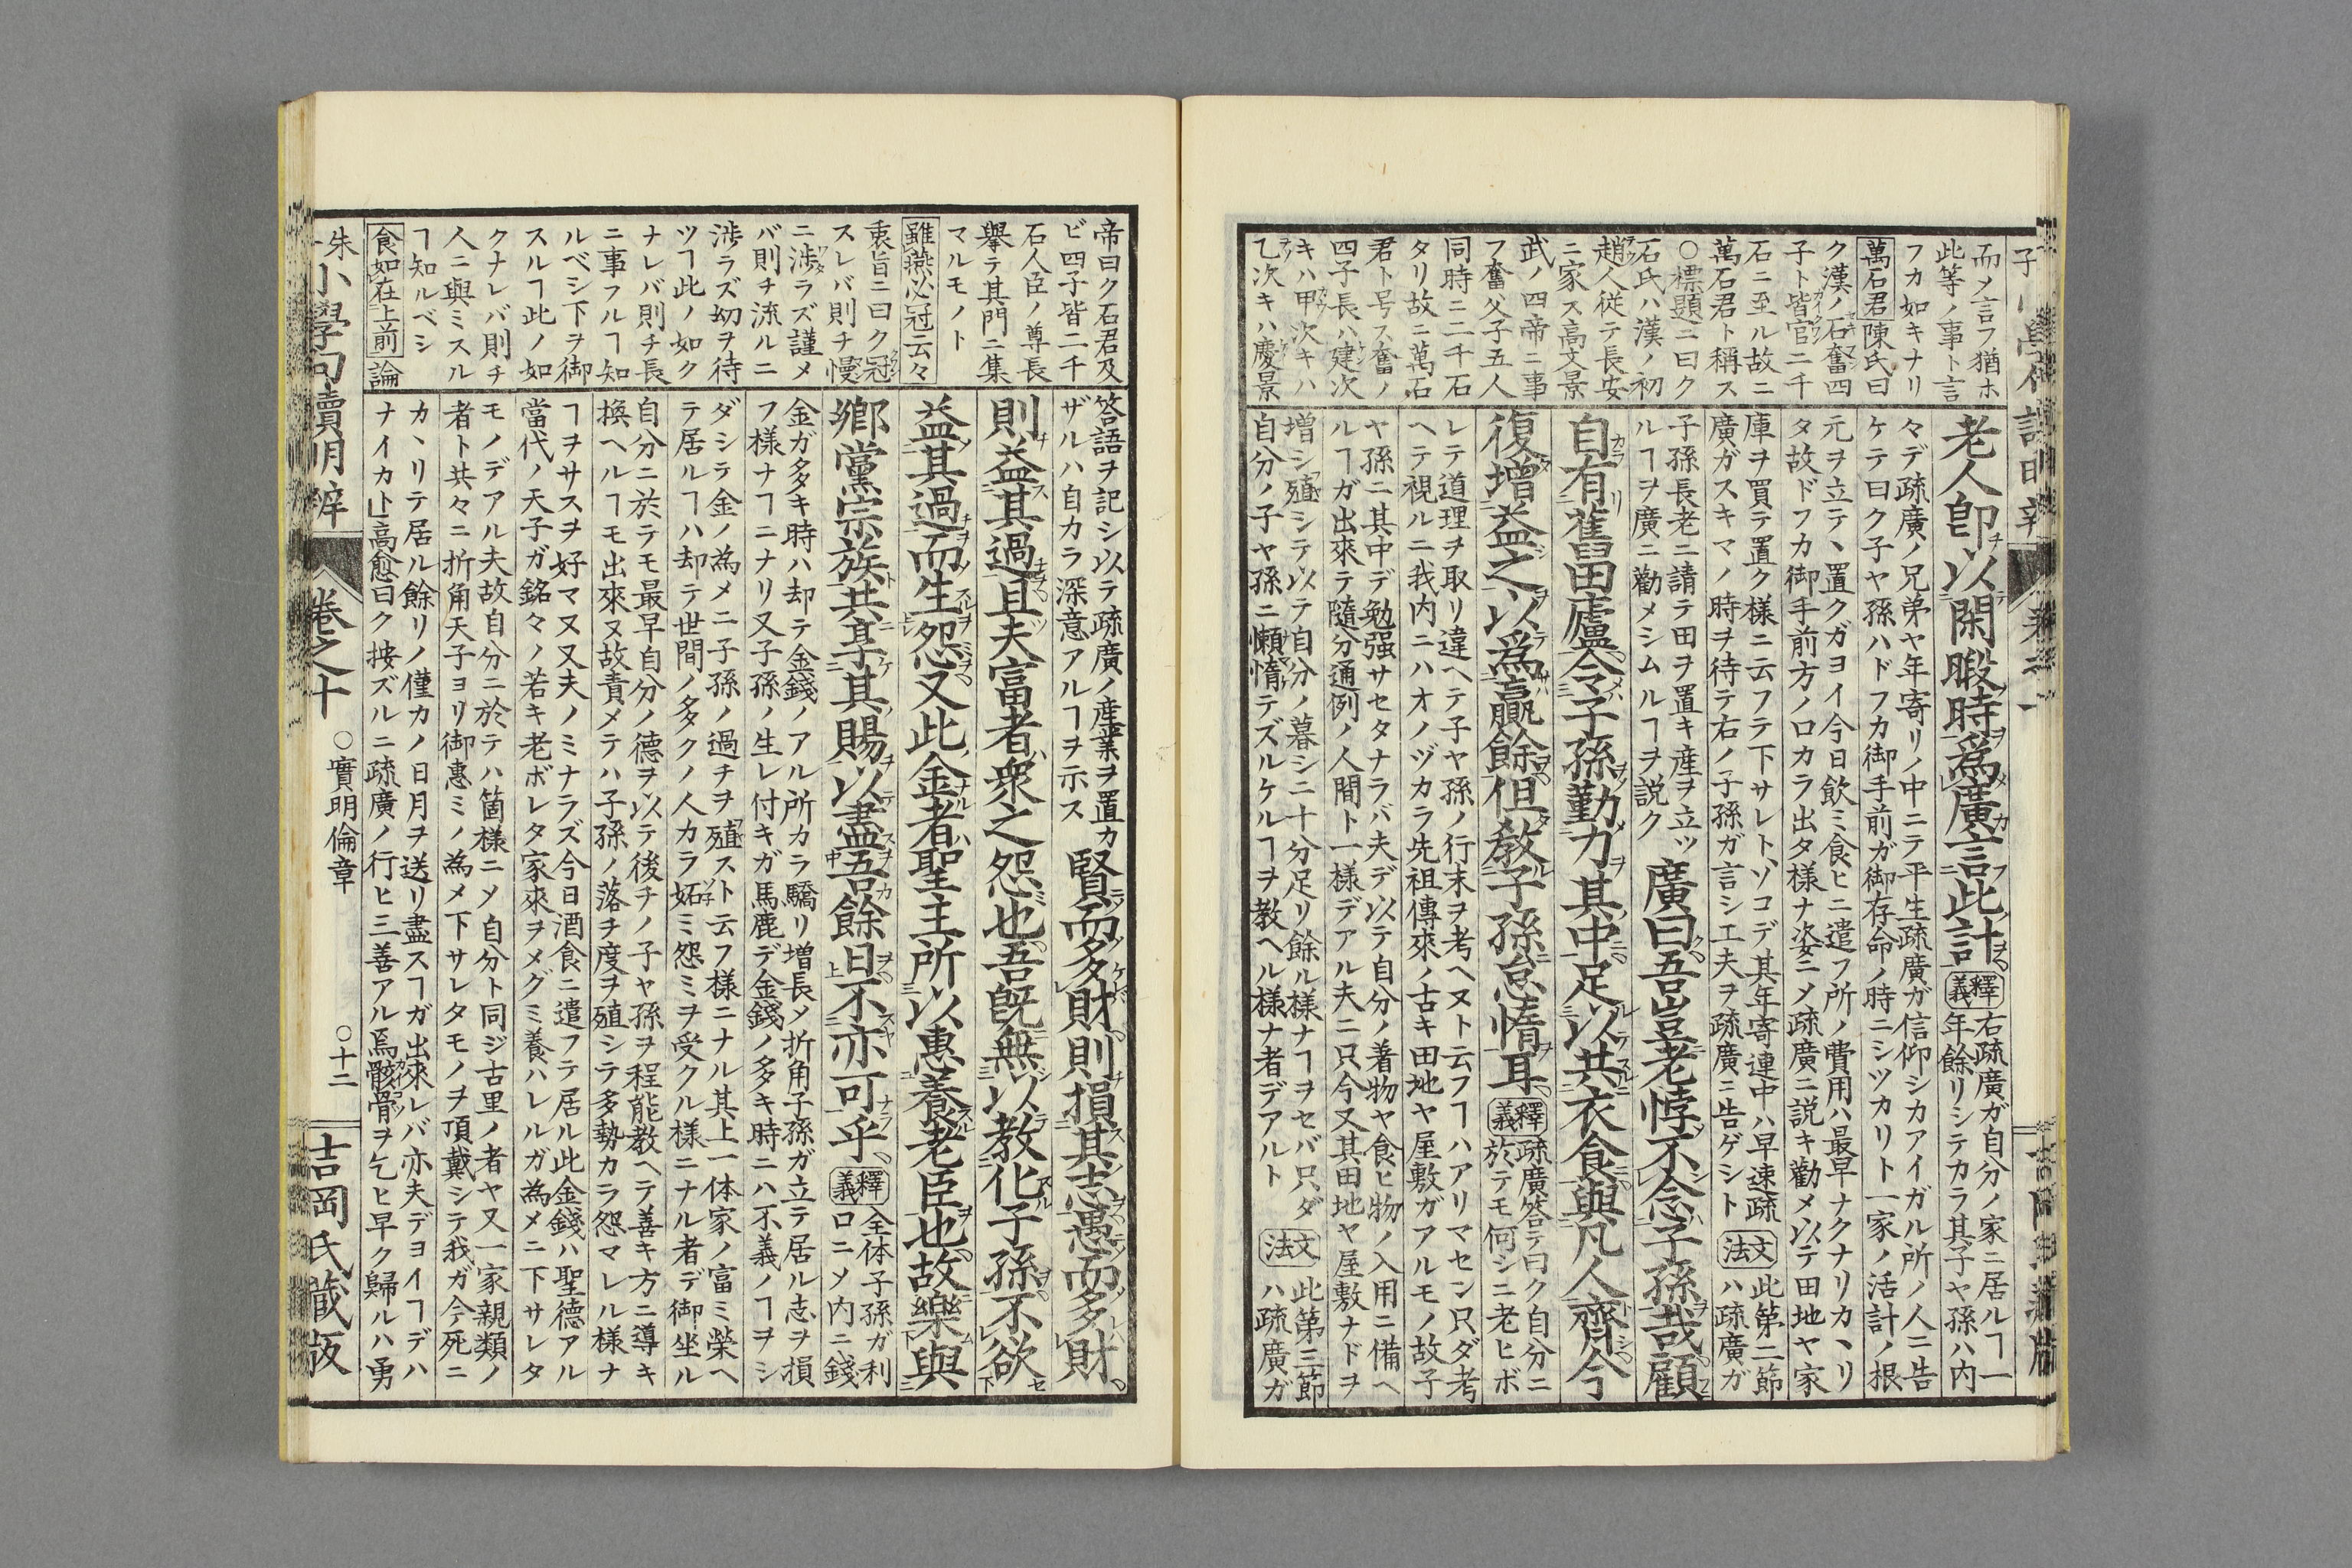 而メ言フ猶ホ
此等ノ事ト言
フカ如キナリ
萬石君陳氏曰
ク漢ノ石奮四
子ト皆官ニ千
石ニ至ル故ニ
萬石君ト稱ス
○標題ニ曰ク
石氏ハ漢ノ初
趙人従テ長安
ニ家ス高文景
武ノ四帝ニ事
フ奮父子五人
同時ニ二千石
タリ故ニ萬石
君ト号ス奮ノ
四子長ハ建次
キハ甲次キハ
乙次キハ慶景
老人卽以閑暇時爲廣言此計
釋義
右疏廣ガ自分ノ家ニ居ルヿ一
年餘リシテカラ其子ヤ孫ハ内
々デ疏廣ノ兄弟ヤ年寄リノ中ニテ平生疏廣ガ信仰シカアイガル所ノ人ニ告
ケテ曰ク子ヤ孫ハドフカ御手前ガ御存命ノ時ニシツカリト一家ノ活計ノ根
元ヲ立テヽ置クガヨイ今日飲ミ食ヒニ遣フ所ノ費用ハ最早ナクナリカヽリ
タ故ドフカ御手前方ノ口カラ出タ様ナ姿ニメ疏廣ニ説キ勸メ以テ田地ヤ家
庫ヲ買テ置ク様ニ云フテ下サレト、ソコデ其年寄連中ハ早速疏
廣ガスキマノ時ヲ待テ右ノ子孫ガ言シ工夫ヲ疏廣ニ告ゲシト
文法
此第二節
ハ疏廣ガ
子孫長老ニ請テ田ヲ置キ産ヲ立ッ
ルヿヲ廣ニ勸メシムルヿヲ説ク
廣曰吾豈老悖不念子孫哉顧
自有舊田廬令子孫勤力其中足以共衣食與凡人齊今
復增益之以爲贏餘但教子孫怠惰耳
釋義
疏廣答テ曰ク自分ニ
於テモ何シニ老ヒボ
レテ道理ヲ取リ違ヘテ子ヤ孫ノ行末ヲ考ヘヌト云フヿハアリマセン只ダ考
ヘテ視ルニ我内ニハオノヅカラ先祖傳來ノ古キ田地ヤ屋敷ガアルモノ故子
ヤ孫ニ其中デ勉强サセタナラバ夫デ以テ自分ノ着物ヤ食ヒ物ノ入用ニ備ヘ
ルヿガ出來テ隨分通例ノ人間ト一様デアル夫ニ只今又其田地ヤ屋敷ナドヲ
増シ殖シテ以テ自分ノ暮シニ十分足リ餘ル様ナヿヲセバ只ダ
自分ノ子ヤ孫ニ懶惰テズルケルヿヲ教ヘル様ナ者デアルト
文法
此第三節
ハ疏廣ガ
帝曰ク石君及
ビ四子皆二千
石人臣ノ尊長
擧テ其門ニ集
マルモノト
雖燕必冠云々
衷旨ニ曰ク冠
スレバ則チ慢
ニ渉ラズ謹メ
バ則チ流ルニ
渉ラズ幼ヲ待
ツヿ此ノ如ク
ナレバ則チ長
ニ事フルヿ知
ルベシ下ヲ御
スルヿ此ノ如
クナレバ則チ
人ニ與ミスル
ヿ知ルベシ
食如在上前論
答語ヲ記シ以テ疏廣ノ産業ヲ置カ
ザルハ自カラ深意アルヿヲ示ス
賢而多財則損其志愚而多財
則益其過且夫富者衆之怨也吾旣無以教化子孫不欲
益其過而生怨又此金者聖主所以惠養老臣也故樂與
鄕黨宗族共享其賜以盡吾餘日不亦可乎
釋義
全体子孫ガ利
口ニメ内ニ錢
金ガ多キ時ハ却テ金錢ノアル所カラ驕リ増長メ折角子孫ガ立テ居ル志ヲ損
フ様ナヿニナリ又子孫ノ生レ付キガ馬鹿デ金錢ノ多キ時ニハ不義ノヿヲシ
ダシテ金ノ為メニ子孫ノ過チヲ殖スト云フ様ニナル其上一体家ノ富ミ榮ヘ
テ居ルヿハ却テ世間ノ多クノ人カラ妬ミ怨ミヲ受クル様ニナル者デ御坐ル
自分ニ於テモ最早自分ノ德ヲ以テ後チノ子ヤ孫ヲ程能教ヘテ善キ方ニ導キ
換ヘルヿモ出來ヌ故責メテハ子孫ノ落ヲ度ヲ殖シテ多勢カラ怨マレル様ナ
ヿヲサスヲ好マヌ又夫ノミナラズ今日酒食ニ遣フテ居ル此金錢ハ聖德アル
當代ノ天子ガ銘々ノ若キ老ボレタ家來ヲメグミ養ハレルガ為メニ下サレタ
モノデアル夫故自分ニ於テハ箇様ニメ自分ト同ジ古里ノ者ヤ又一家親類ノ
者ト共々ニ折角天子ヨリ御惠ミノ為メ下サレタモノヲ頂戴シテ我ガ今死ニ
カヽリテ居ル餘リノ僅カノ日月ヲ送リ盡スヿガ出來レバ亦夫デヨイヿデハ
ナイカト高愈曰ク按ズルニ疏廣ノ行ヒ三善アル焉骸骨ヲ乞ヒ早ク歸ルハ勇
小學句讀明辨
卷之十
○實明倫章
○十二
吉岡氏藏版